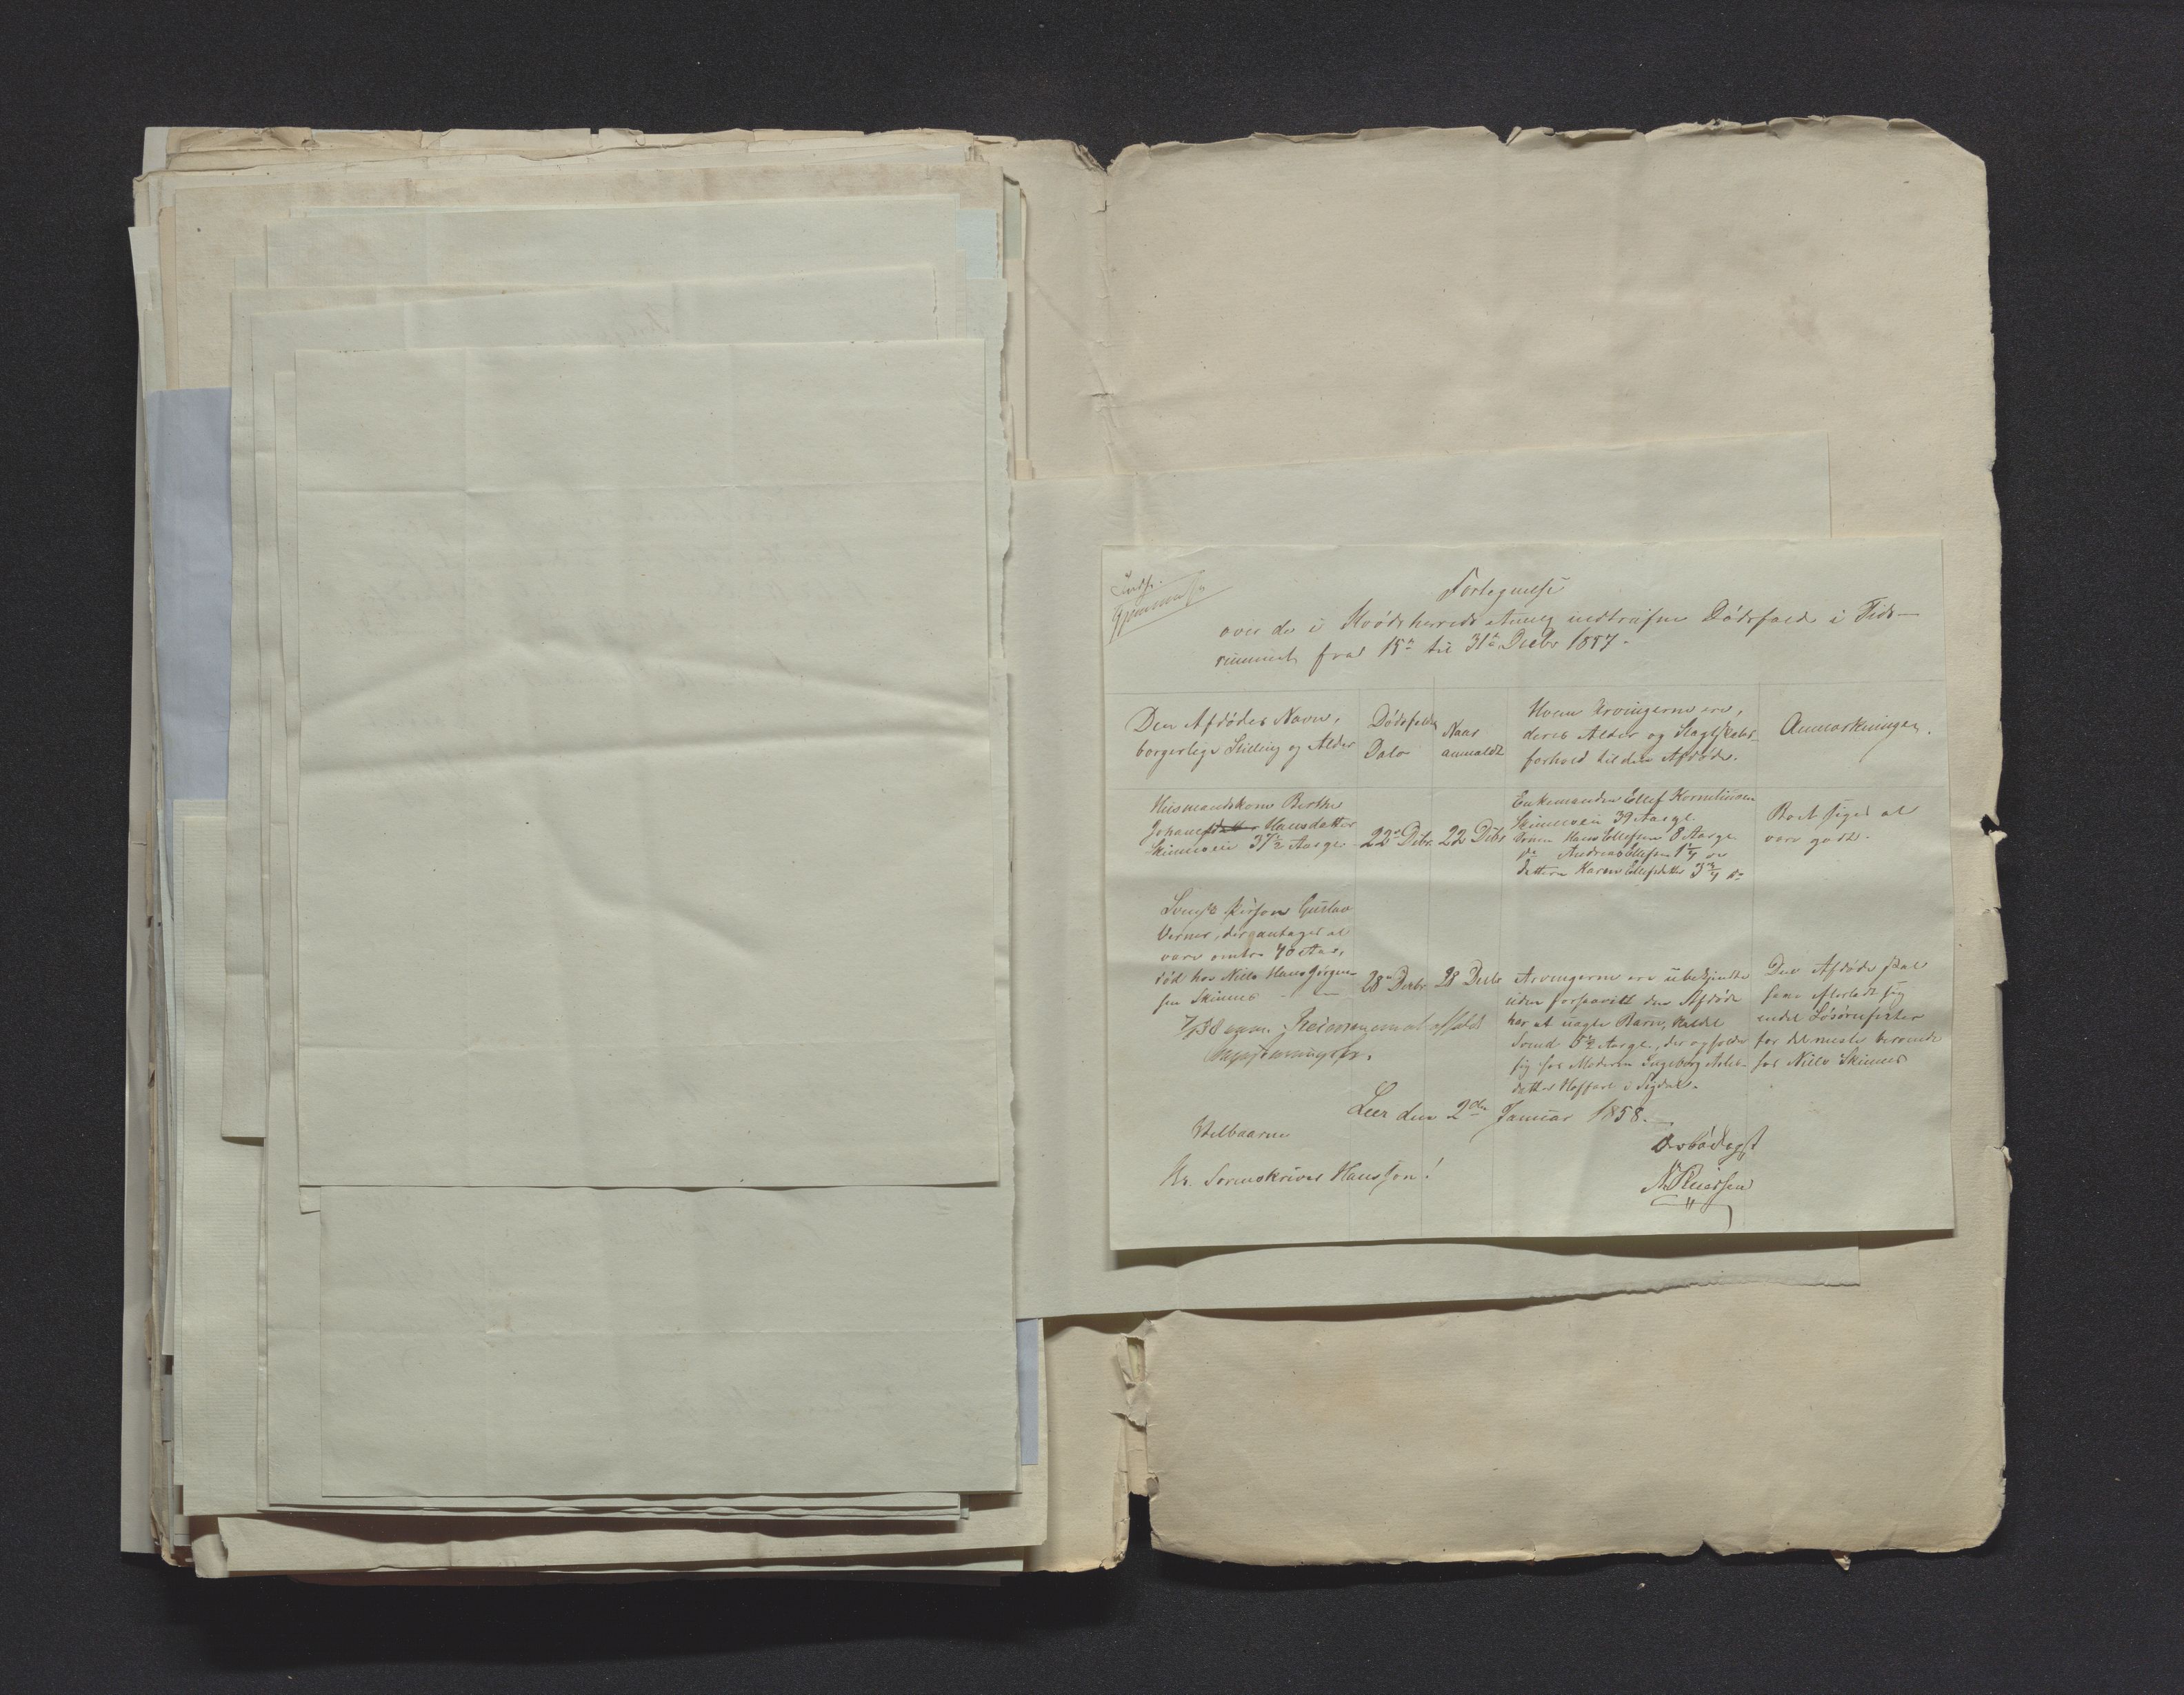 Indf.
Fortegnelse
over de i Krødsherreds Annex indtrufne Dødsfald i Tids-
rummet fra 15de til 31te Decbr 1857.
Den Afdødes Navn,
borgerlige Stilling og Alder
Dødsfaldets
Dato
Naar
anmeldt
Hvem Arvingerne ere,
deres Alder og Slægtskabs-
forhold til den Afdøde.
Anmærkninger.
Huusmandskone Berthe
Johannesdatter Hansdatter
Skinnesein 37½ Aar gl.
22de Decbr.
22 Decbr
Enkemanden Ellef Korneliussen
Skinnesein 39 Aar gl.
Sønnen Hans Ellefsen 8 Aar gl.
do Andreas Ellefsen 1¼ do
Datteren Karen Ellefsdatter 3¾ do
Boet siges at
være godt.
Svensk Person Gustav
Verner, der antages at
være omtr. 70 Aar,
død hos Niels Hans Jørgen-
sen Skinnes
28de Decbr.
28 Decbr
Arvingerne ere ubekjendte
uden forsaavidt den Afdøde
har et uægte Barn, kaldet
Svend 5½ Aar gl., der opholder
sig hos Moderen Ingeborg Asles-
datter Hoffart i Sigdal.
Den Afdøde skal
have efterladt sig
endel Løsørepister
for det meste beroende
hos Niels Skinnes
7/1 58
Leer den 2den Januar 1858.
Velbaarne
Hr. Sorenskriver Hansson!
Ærbødigst